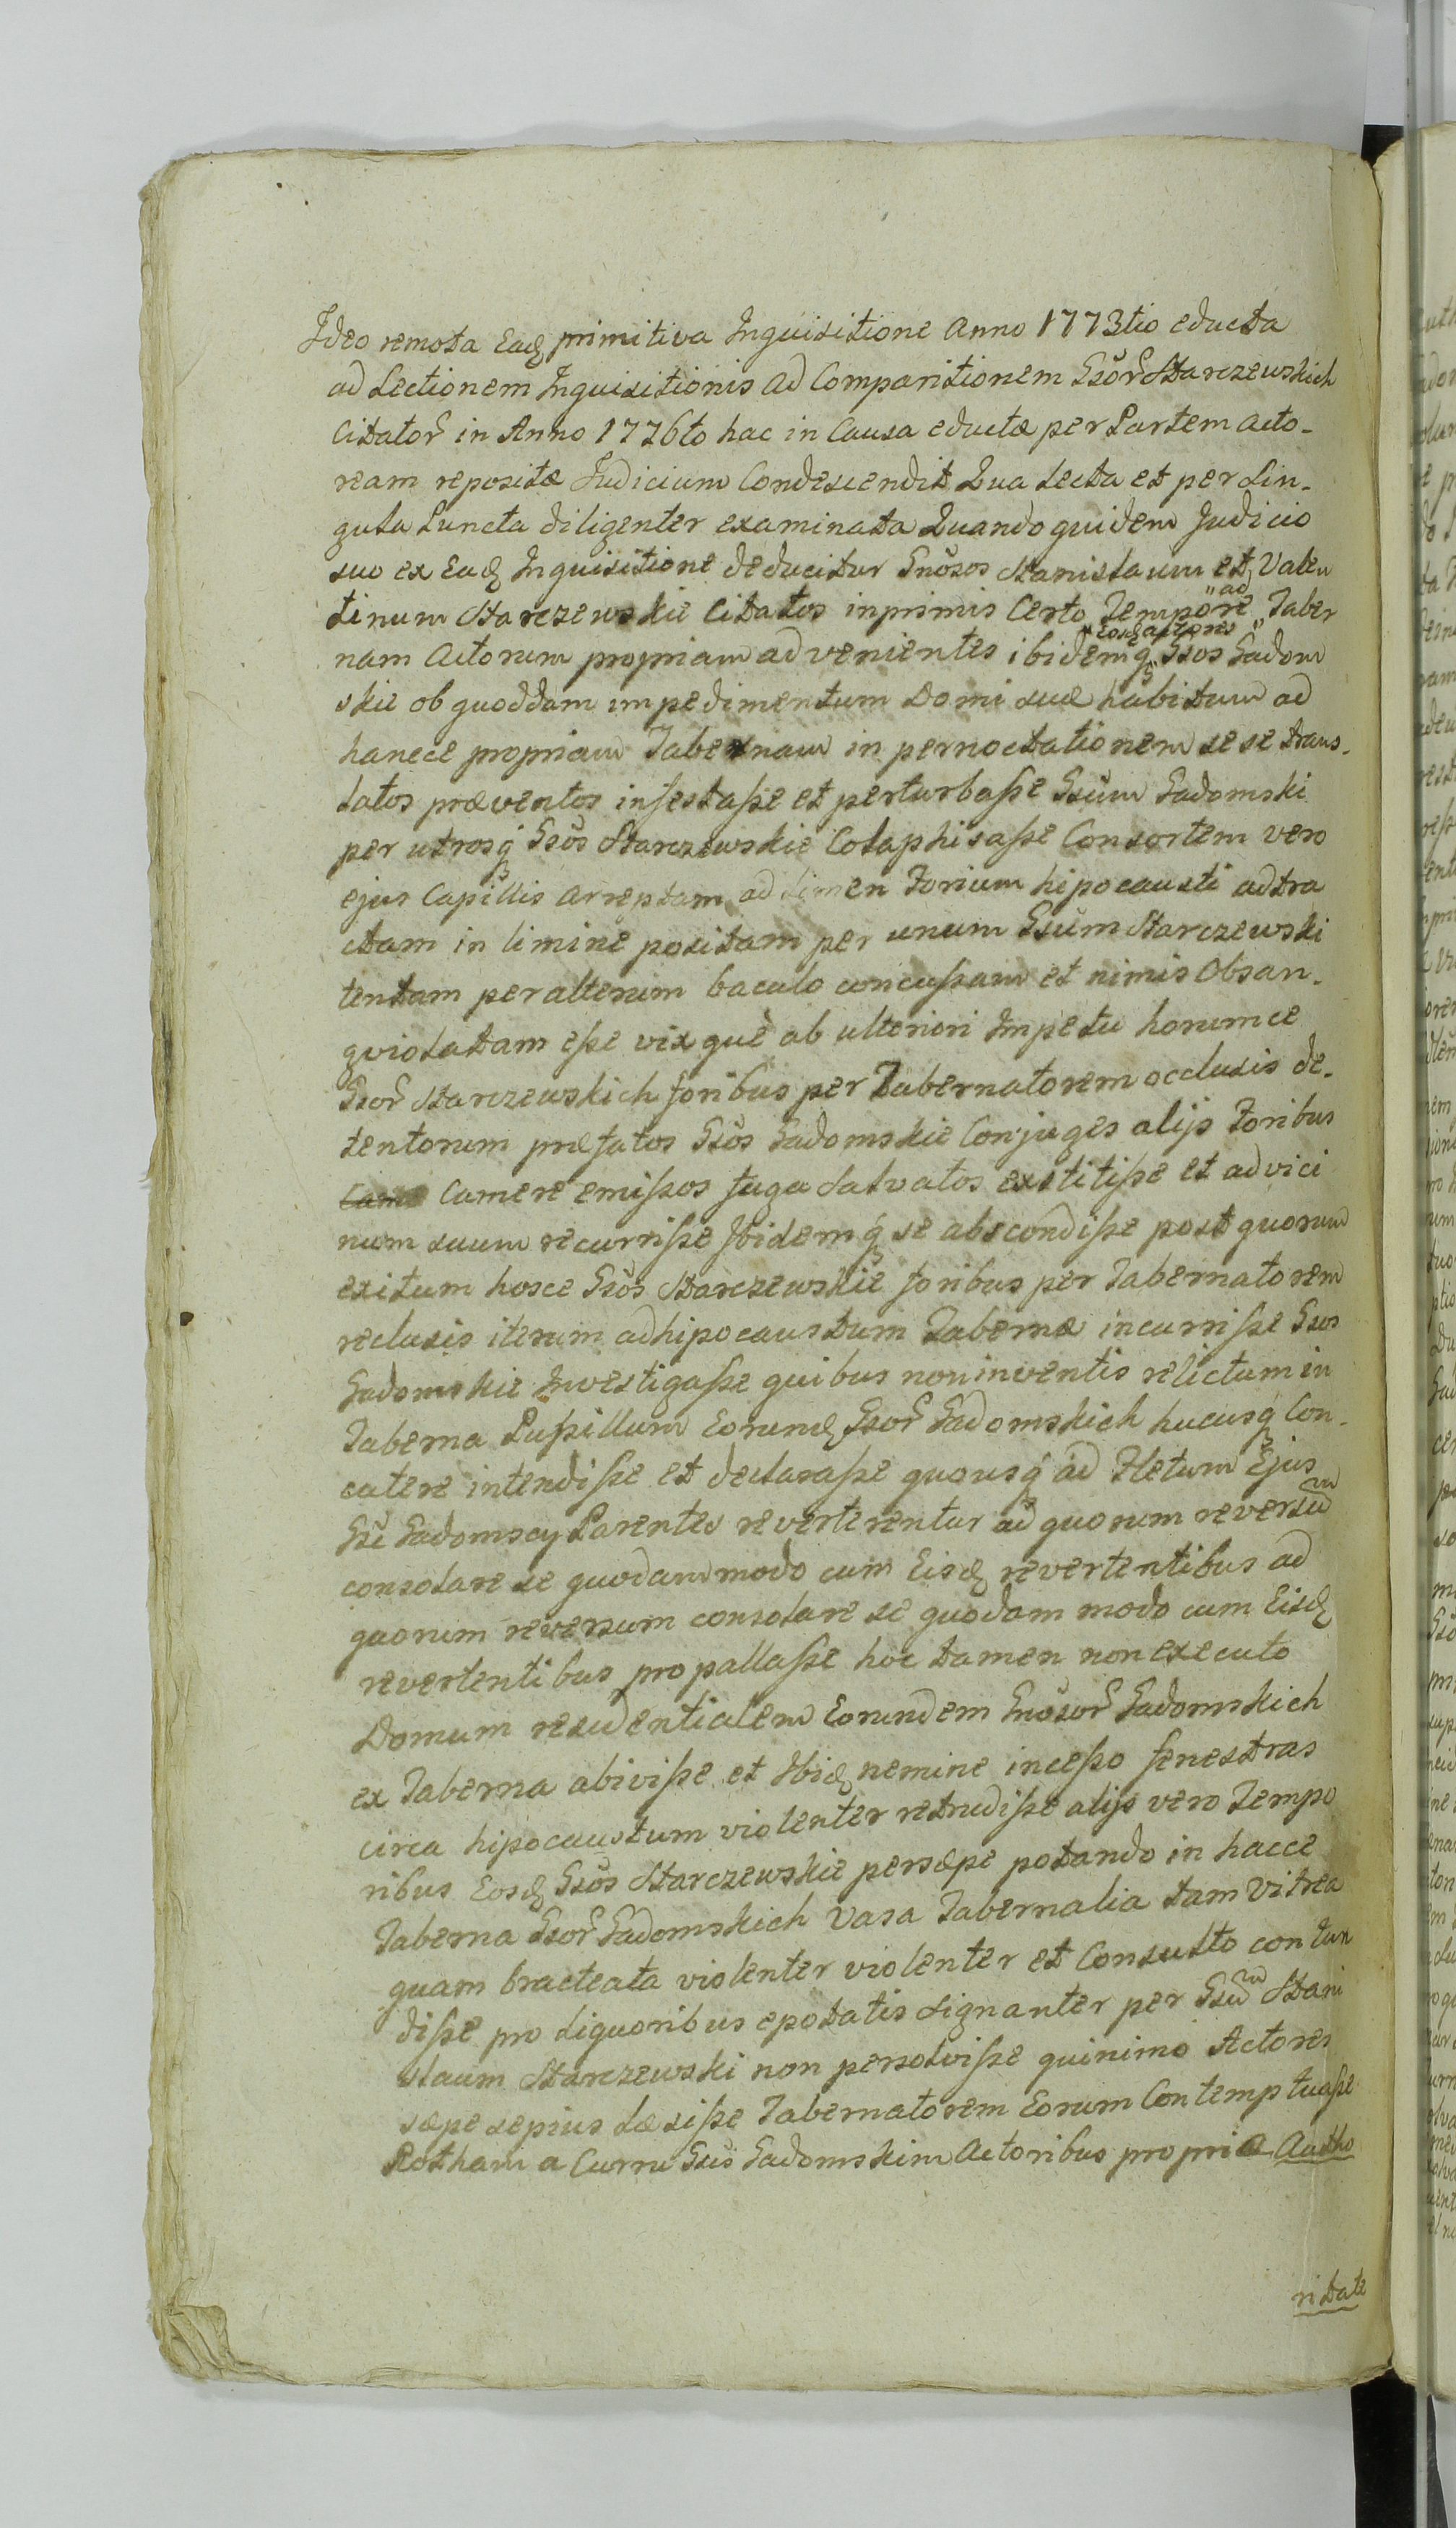 Ideo remota Eadq primitiva Inquisitione Anno 1773tio educta
ad Lectionem Inquisitionis ad Comparitionem Gsör Starczewskich
Citator in Anno 1776to hac in Causa eductæ per Partem Acto-
ream repositæ Judicium Condescendit Qua Lecta et per Sin-
gula Puncta diligenter examinata Quandoquidem Judicio
suo ex Eadq Inquisitione deducitur Gnösos Stanislaum et Valen
tinum Starczewskie Citatos inprimis Certo Tempore "ad" Taber
nam Actorum propriam advenientes ibidemq "Eosdq actores" Gsos Gadom
skie ob quoddam impedimentum Domi suæ habitum ad
hancce propriam Tabernam in pernoctationem sese trans-
latos præventos infestaſse et perturbaſse Gsüm Gadomski
per utrosq Gsös Starczewskie Colaphisaſse Consortem vero
ejus Capillis arreptam ad Limen Forium hipocausti adtra
ctam in limine positam per unum Gsüm Starczewski
tentam per alterum baculo concuſsam et nimis Obsan-
gviolatam eſse vix què ab ulteriori Impetu horumce
Gsor Starczewskich foribus per Tabernatorem occlusis de-
tentorum præfatos Gsös Gadomskie Conjuges alijs Foribus
Came Camere emiſsos fuga Salvatos extitiſse et ad vici
num suum recurriſse Ibidemq se abscondiſse post quorum
exitum hosce Gsös Starczewskie foribus per Tabernatorem
reclusis iterum ad hipocaustum Tabernæ incurriſse Gsos
Gadomskie Investigaſse quibus non inventis relictum in
Taberna Pupillum Eorumdq Gsor Gadomskich hucusq Con-
cutere intendiſse et declaraſse quousq ad Fletum Ejus
Gsi Gadomscy Parentes reverterentur ad quorum reversum
consolare se quodammodo cum Eisdq revertentibus ad
quorum reversum consolare se quodam modo cum Eisdq
revertentibus propallaſse hoc tamen non executo
Domum residentialem Eorundem Gnösor Gadomskich
ex Taberna abiviſse et Ibidq nemine inceſso fenestras
circa hipocaustum violenter retrudiſse alijs vero Tempo
ribus Eosdq Gsös Starczewskie persæpe potando in hacce
Taberna Gsor Gadomskich Vasa Tabernalia tam Vitrea
quam bracteata violenter violenter et Consulto contun
diſse pro Liquoribus epotatis signanter per Gsum Stani
slaum Starczewski non persolviſse quinimo Actores
sæpe sepius Læsiſse Tabernatorem Eorum Contemptuaſse
Rotham a Curru Gsis Gadomskim Actoribus propria Autho
ritate